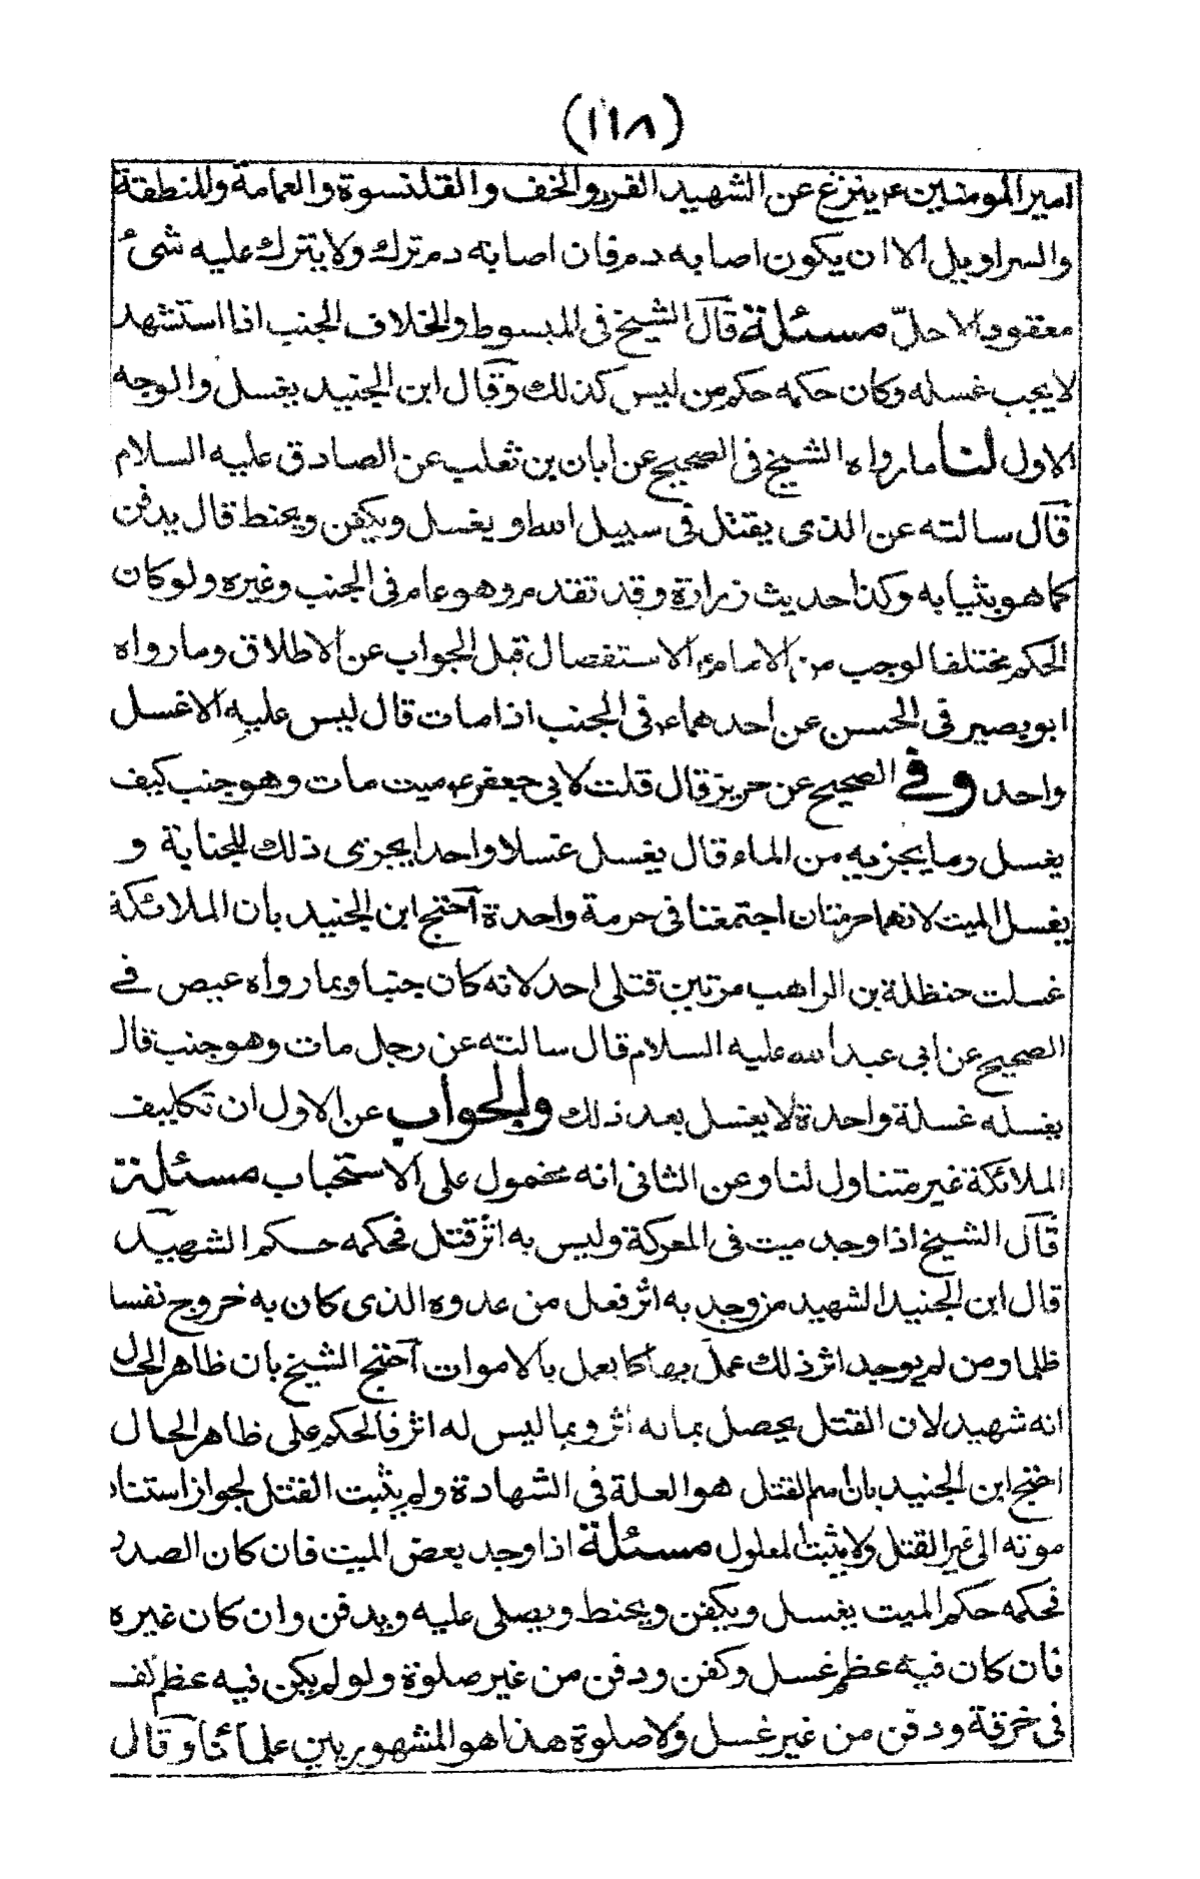 (١١٨)
امير المومنين ع ينزع عن الشهيد الفرو والخف والقلنسوة والعمامة والمنطقة
والسراويل الا ان يكون اصابه دم فان اصابه دم ترك ولا يترك عليه شئ
معقود الا حلّ مسئلة قال الشيخ فى المبسوط والخلاف الجنب اذا استشهد
لا يجب غسله وكان حكمه حكم من ليس كذلك وقال ابن الجنيد يغسل والوجه
الاول لنا ما رواه الشيخ فى الصحيح عن ابان بن تغلب عن الصادق عليه السلام
قال سالته عن الذى يقتل فى سبيل الله او يغسل ويكفن ويحنط قال يدفن
كما هو بثيابه وكذا حديث زرارة وقد تقدم وهو عام فى الجنب وغيره ولو كان
الحكم مختلفا لوجب من الامام ع الاستفصال قبل الجواب عن الاطلاق وما رواه
ابو بصير فى الحسن عن احدهما ع فى الجنب اذا مات قال ليس عليه الا غسل
واحد وفے الصحيح عن حريز قال قلت لابى جعفر ع ميت مات وهو جنب كيف
يغسل وما يجزيه من الماء قال يغسل غسلا واحدا يجزى ذلك للجنابة و
يغسل الميت لانهما حرمتان اجتمعتا فى حرمة واحدة احتج ابن الجنيد بان الملائكة
غسلت حنظلة بن الراهب مرتين قتلى احد لانه كان جنبا وبما رواه عيص فے
الصحيح عن ابى عبد الله عليه السلام قال سالته عن رجل مات وهو جنب قال
يغسله غسلة واحدة لا يغسل بعد ذلك والجواب عن الاول ان تكليف
الملائكة غير متناول لنا وعن الثانى انه محمول على الاستحباب مسئلة
قال الشيخ اذا وجد ميت فى المعركة وليس به اثر قتل فحكمه حكم الشهيد
قال ابن الجنيد الشهيد من وجد به اثر فعل من عدوه الذى كان به خروج نفسا
ظلما ومن لم يوجد اثر ذلك عمل بها كما يعمل بالاموات احتج الشيخ بان ظاهر الحال
انه شهيد لان القتل يحصل بما به اثر وبما ليس له اثر فالحكم على ظاهر الحال
احتج ابن الجنيد بان اسم القتل هو العلة فى الشهادة ولم يثبت القتل لجواز استناد
موته الى غير القتل ولا يثبت المعلول مسئلة اذا وجد بعض الميت فان كان الصدر
فحكمه حكم الميت يغسل ويكفن ويحنط ويصلى عليه ويدفن وان كان غيره
فان كان فيه عظم غسل وكفن ودفن من غير صلوة ولو لم يكن فيه عظم لف
فى خرقة ودفن من غير غسل ولا صلوة هذا هو المشهور بين علمائنا وقال